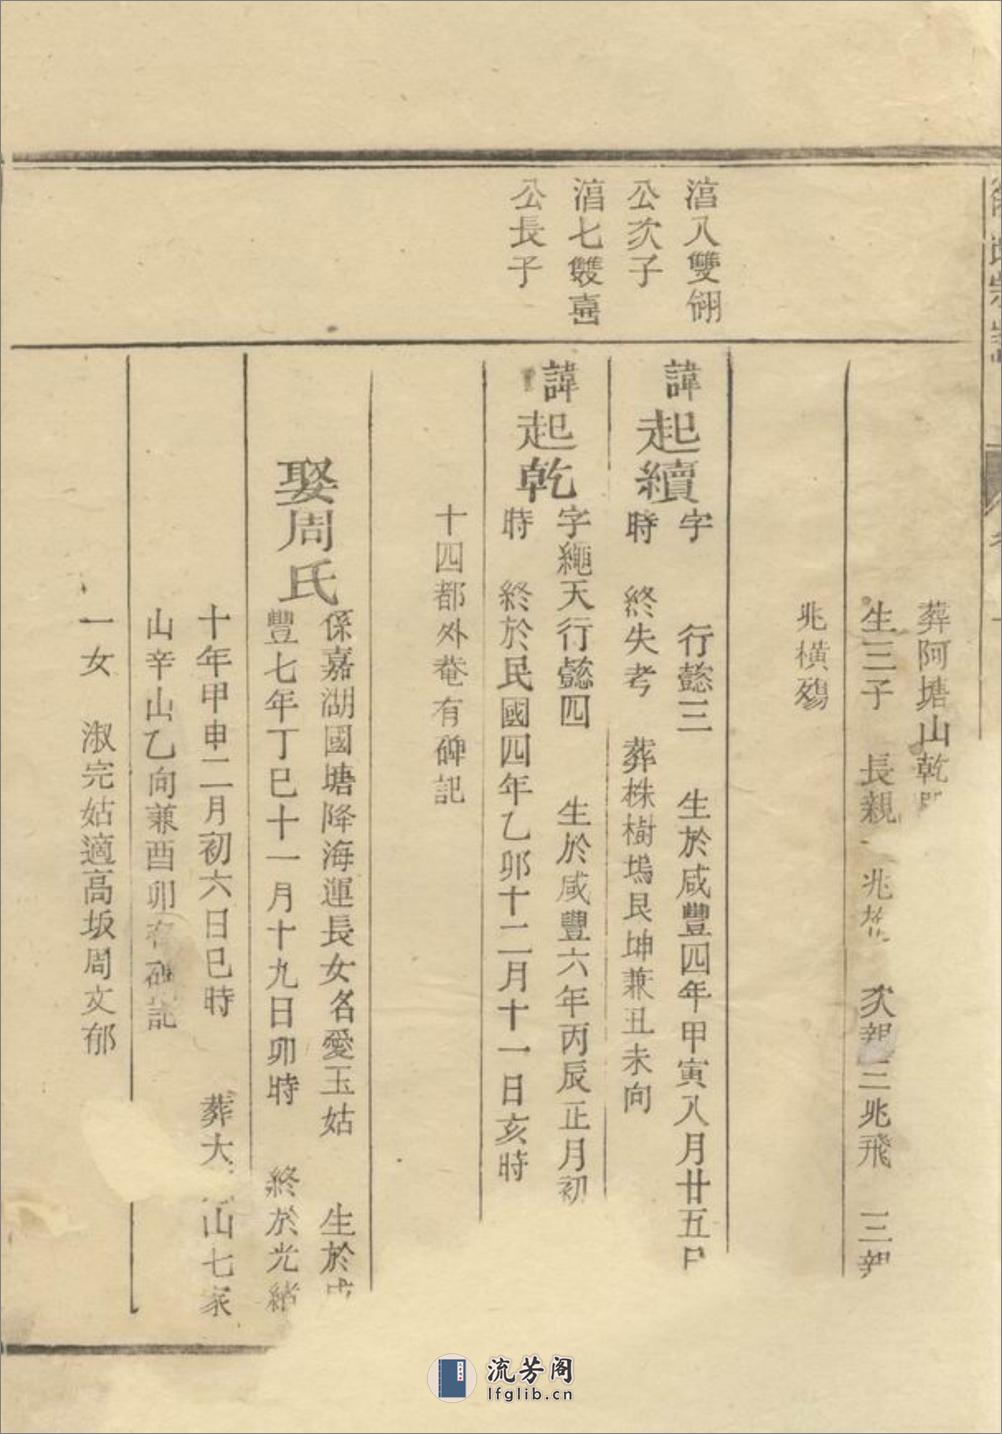 葬阿塘山乾
生三子 長親 兆 次親三兆飛 三親
兆橫殤
滀八雙翎
公次子
諱起續
字 行懿三 生於咸豐四年甲寅八月廿五日
時 終失考 葬株樹塢艮坤兼丑未向
滀七雙喜
公長子
諱起乾
字繩天行懿四 生於咸豐六年丙辰正月初
時 終於民國四年乙卯十二月十一日亥時
十四都外菴有碑記
娶周氏
係嘉湖國塘降海運長女名愛玉姑 生於咸
豐七年丁巳十一月十九日卯時 終於光緒
十年甲申二月初六日巳時 葬大 山七家
山辛山乙向兼酉卯有碑記
一女 淑完姑適高坂周文郁
流芳阁
lfglib.cn